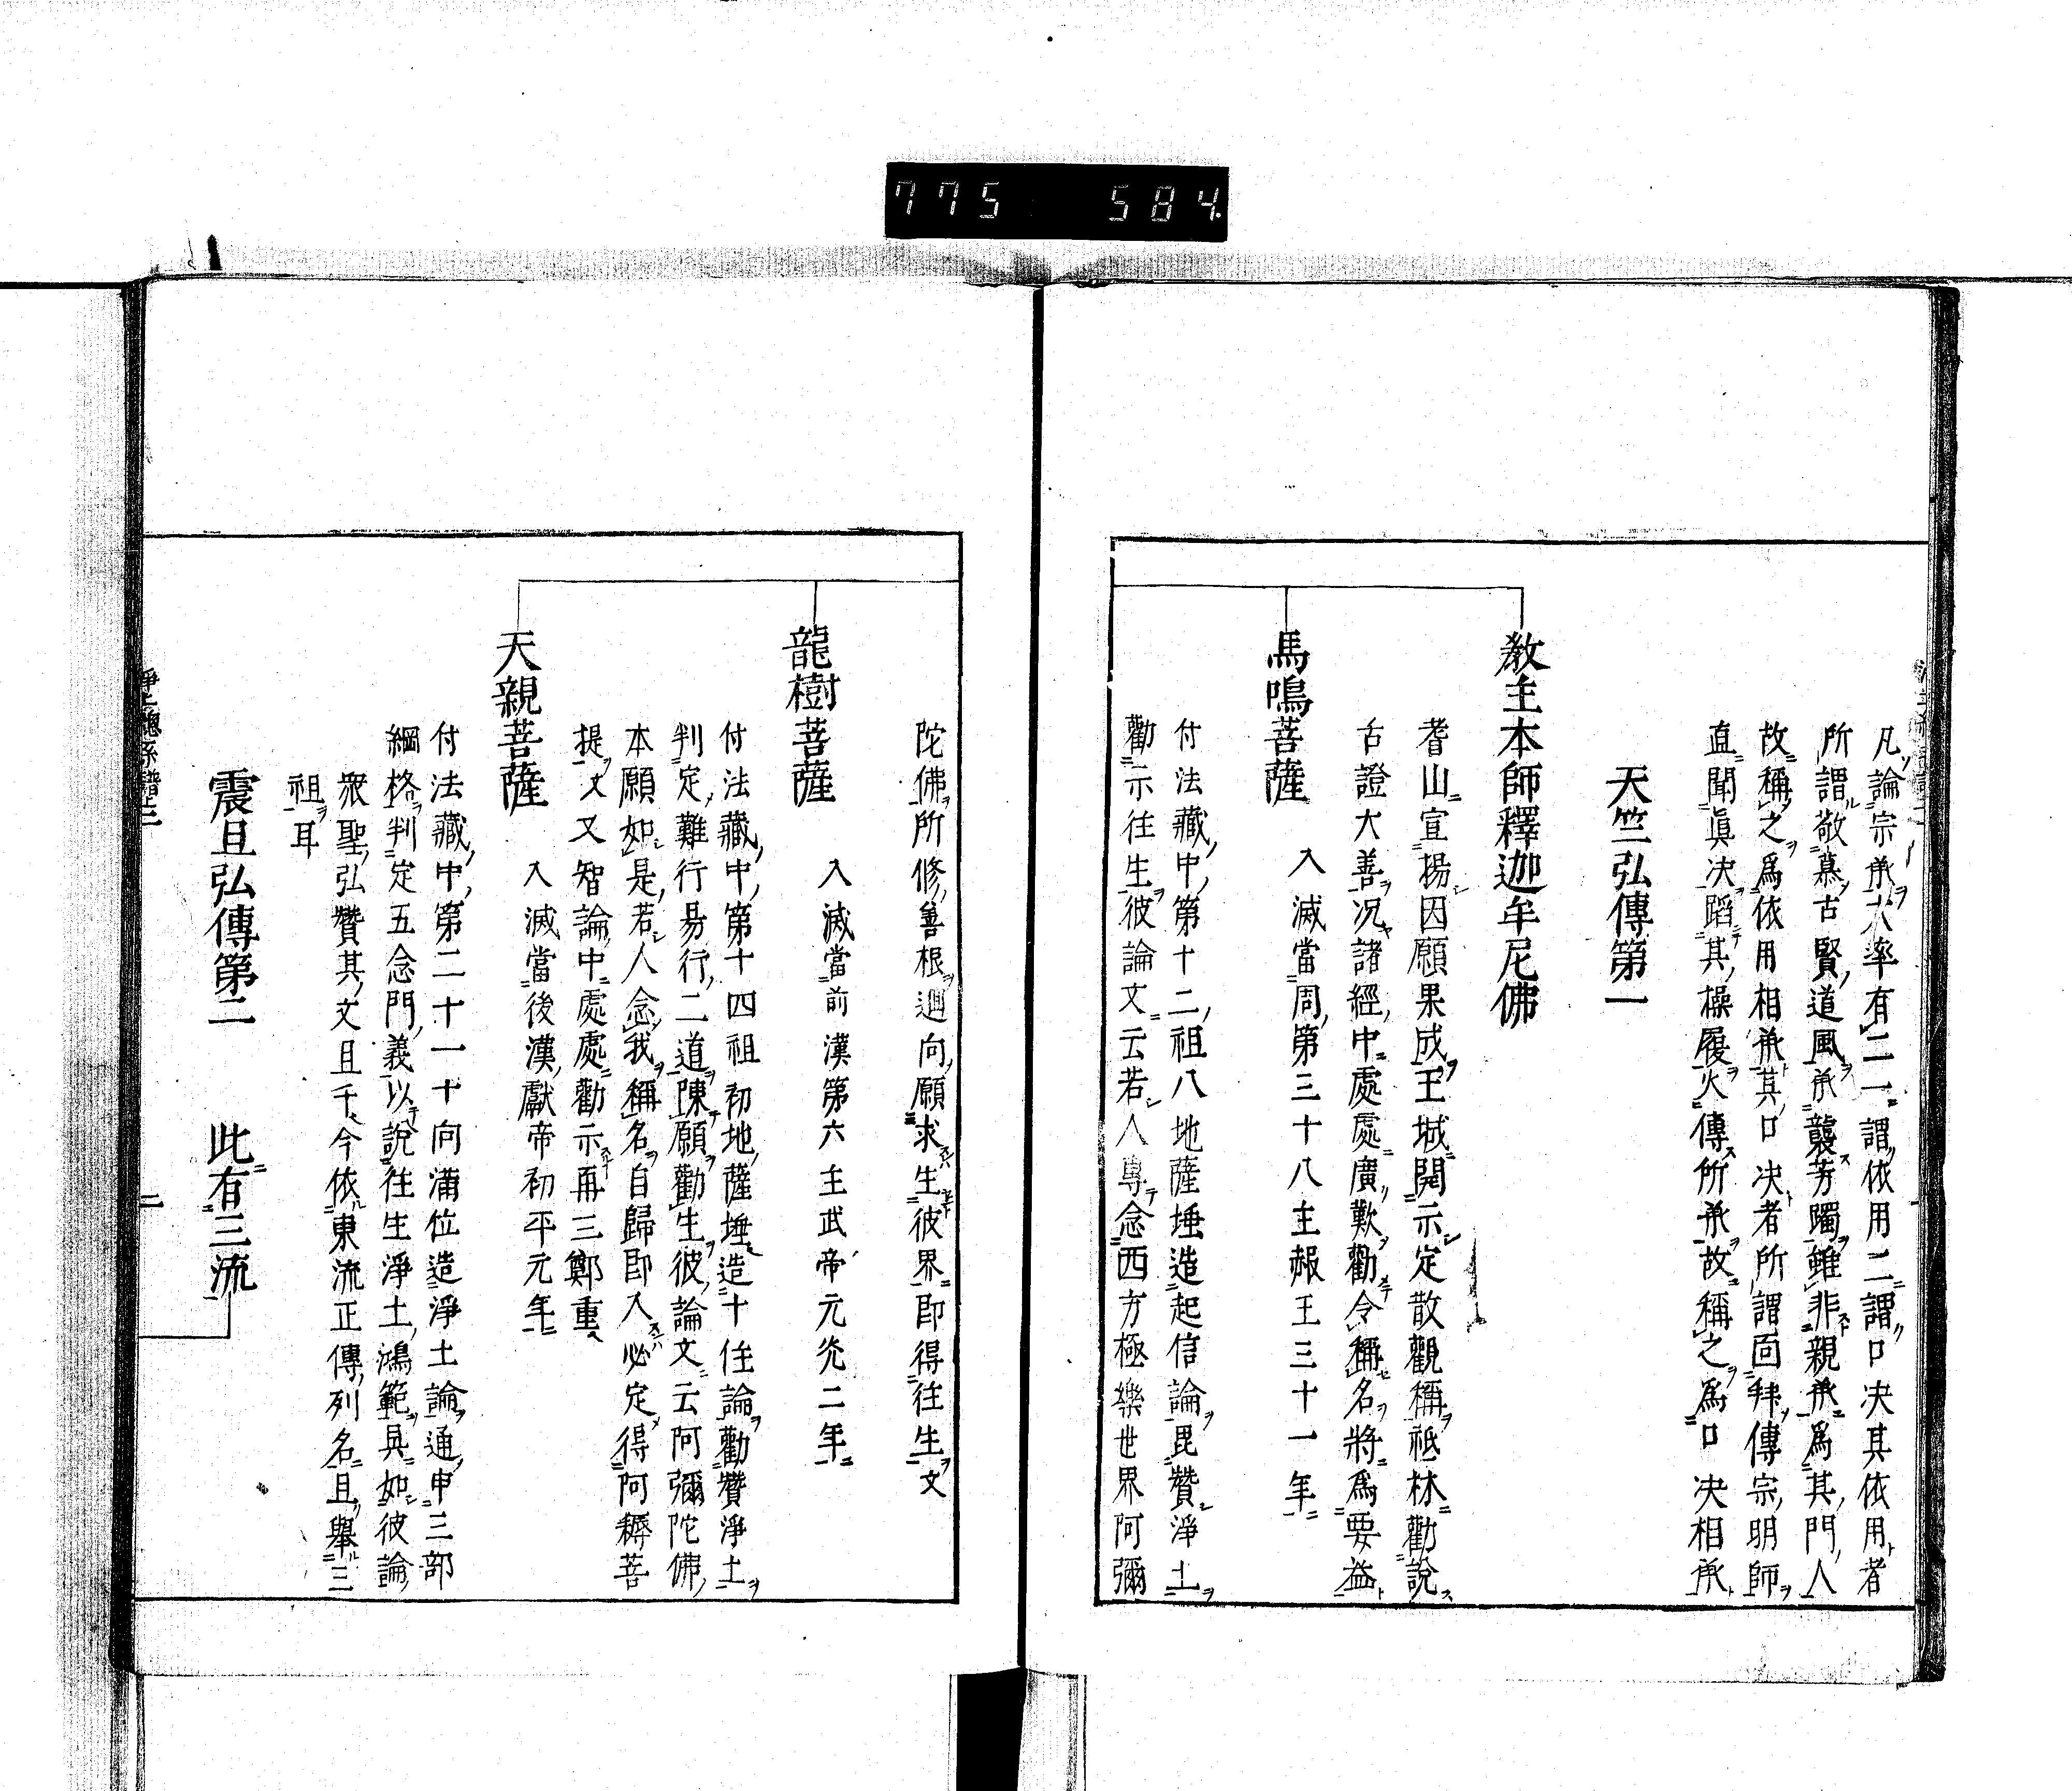 775 584
凡論宗承大率有二一謂依用二謂口决其依用者
所謂敬慕古賢道風承襲芳躅雖非親承爲其門人
故稱之爲依用相承其口决者所謂面拜傳宗明師
直聞眞决蹈其操履火傳所承故稱之爲口决相承
天竺弘傳第一
教主本師釋迦牟尼佛
耆山宣揚因願果成王城開示定散觀稱祇林勸說
古證大善况諸經中處處廣歎勸令稱名將爲要益
馬鳴菩薩 入滅當周第三十八主赧王三十一年
付法藏中第十二祖八地薩埵造起信論毘贊淨土
勸示往生彼論文云若人專念西方極樂世界阿彌
陀佛所修善根迴向願求生彼界即得往生文
龍樹菩薩 入滅當前漢第六主武帝元光二年
付法藏中第十四祖初地薩埵造十住論勸贊淨土
判定難行易行二道陳願勸生彼論文云阿彌陀佛
本願如是若人念我稱名自歸即入必定得阿耨菩
提文又智論中處處勸示再三鄭重
天親菩薩 入滅當後漢獻帝初平元年
付法藏中第二十一十向滿位造淨土論通申三部
綱格判定五念門義以說往生淨土鴻範具如彼論
衆聖弘贊其文且千今依東流正傳列名且舉三
祖耳
震旦弘傳第二 此有三流
淨土總系譜上 二